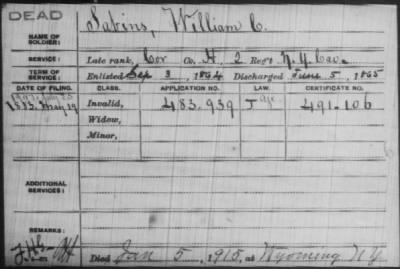 DEAD
NAME OF SOLDIER: Sabins, William C.
SERVICE: Late rank, Cor Co. H, 2 Reg't N.Y. Cav.
TERM OF SERVICE: Enlisted Sep 3, 1864 Discharged June 5, 1865
DATE OF FILING. CLASS. APPLICATION NO. LAW. CERTIFICATE NO.
1883, May 19 Invalid, 483.939 J Age 491.106
Widow,
Minor,
ADDITIONAL SERVICES:
REMARKS:
Died Jan 5, 1915, at Wyoming N.Y.